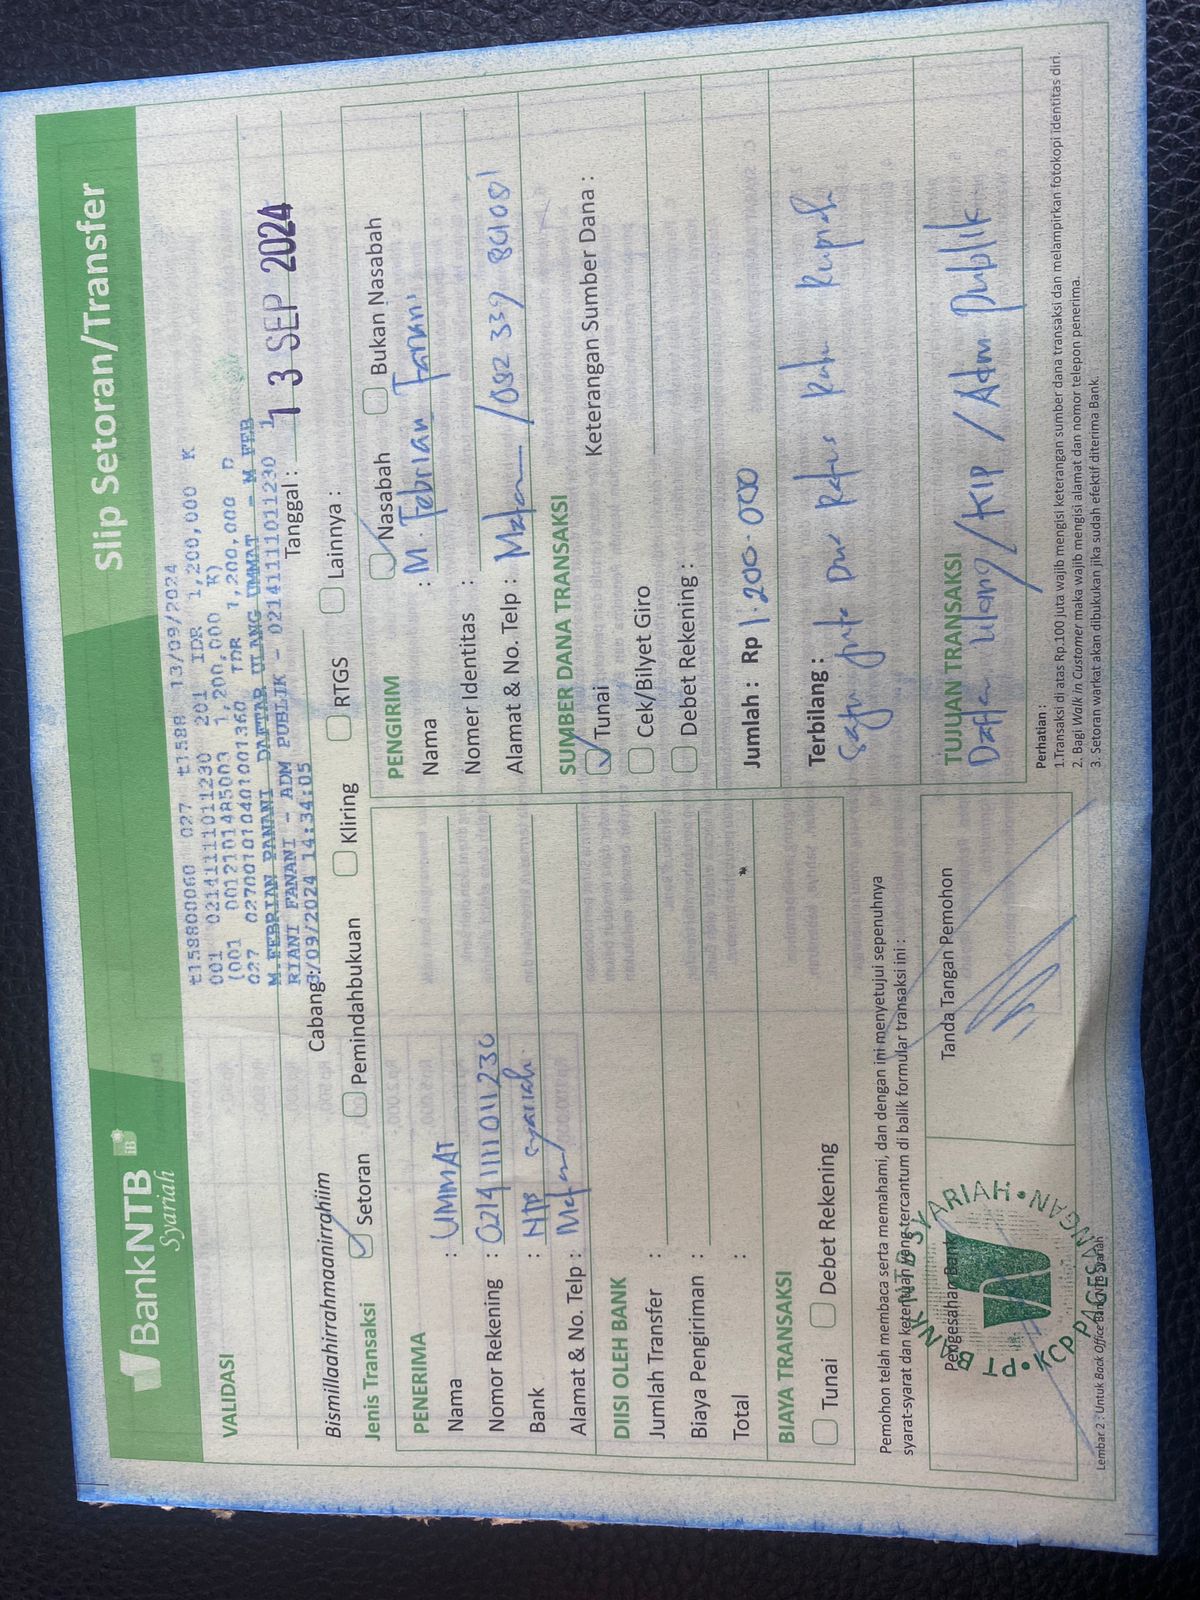 BankNTB
Syariah
Slip Setoran/Transfer
VALIDASI
t158800060 027 t1588 13/09/2024
001 0214111101011230 201 IDR 1,200,000 K
(001 0012101485003 1,200,000 K)
027 0270010104010013​60 IDR 1,200,000 D
M.FEBRIAN PANANI DAFTAR ULANG UMMAT - M FEB
RIANI FANANI - ADM PUBLIK - 0214111101011230 1
3/09/2024 14:34:05
Bismillaahirrahmaanirrahiim
Cabang :
Tanggal : 13 SEP 2024
Jenis Transaksi
Setoran
Pemindahbukuan
Kliring
RTGS
Lainnya :
PENERIMA
Nama : UMMAT
Nomor Rekening : 0214111101011230
Bank : NTB Syariah
Alamat & No. Telp :
DIISI OLEH BANK
Jumlah Transfer :
Biaya Pengiriman :
Total :
BIAYA TRANSAKSI
Tunai
Debet Rekening
PENGIRIM
Nasabah
Bukan Nasabah
Nama : M. Febrian Fanani
Nomer Identitas :
Alamat & No. Telp : / 082 339 861081
SUMBER DANA TRANSAKSI
Tunai
Keterangan Sumber Dana :
Cek/Bilyet Giro
Debet Rekening :
Jumlah : Rp 1.200.000
Terbilang :
Satu juta Dua Ratus Ribu Rupiah
TUJUAN TRANSAKSI
Daftar Ulang / KIP / Adm Publik
Pemohon telah membaca serta memahami, dan dengan ini menyetujui sepenuhnya
syarat-syarat dan ketentuan yang tercantum di balik formular transaksi ini :
Pengesahan Bank
Tanda Tangan Pemohon
PT BANK NTB SYARIAH • KCP PAGESANGAN •
Perhatian :
1.Transaksi di atas Rp.100 juta wajib mengisi keterangan sumber dana transaksi dan melampirkan fotokopi identitas diri.
2. Bagi Walk in Customer maka wajib mengisi alamat dan nomor telepon penerima.
3. Setoran warkat akan dibukukan jika sudah efektif diterima Bank.
Lembar 2 : Untuk Back Office Bank NTB Syariah